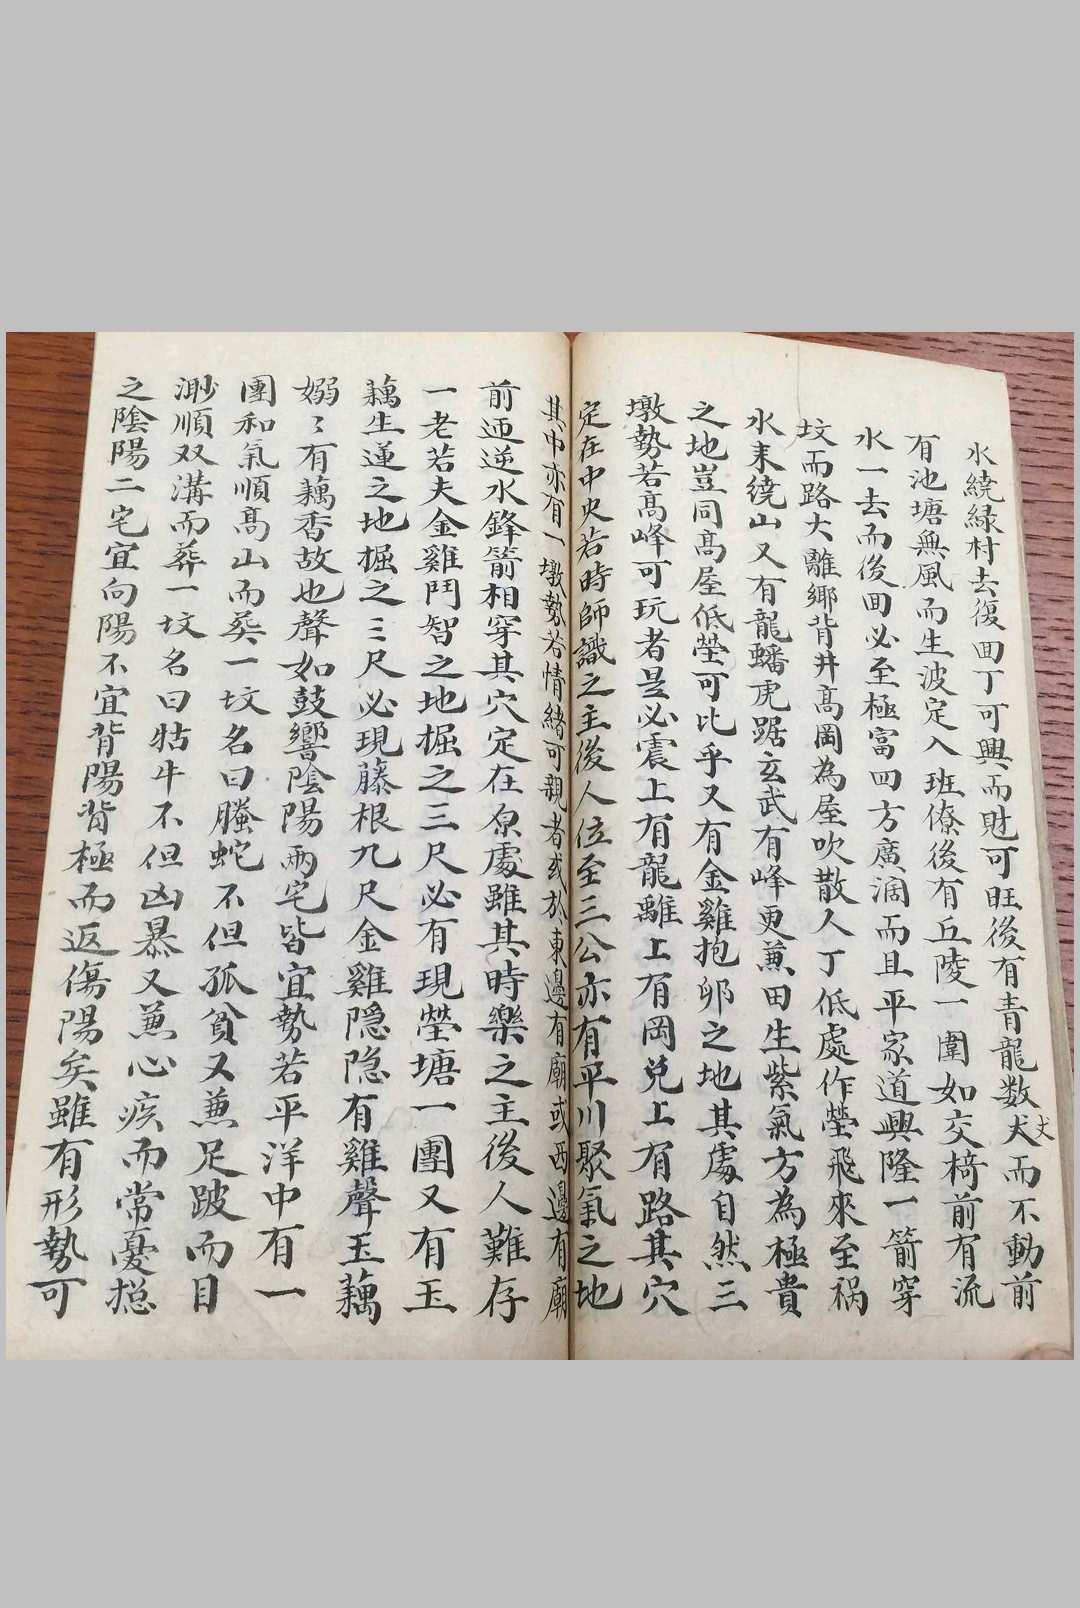 水繞緑村去復囬丁可興而財可旺後有青龍数犬而不動前
丈
有池塘無風而生波定入班僚後有丘陵一圍如交椅前有流
水一去而後囬必至極富四方廣濶而且平家道興隆一箭穿
坟而路大離郷背井髙岡為屋吹散人丁低處作塋飛來至祸
水来繞山又有龍蟠虎踞玄武有峰更兼田生紫氣方為極貴
之地豈同髙屋低塋可比乎又有金雞抱卵之地其處自然三
墩勢若髙峰可玩者是必震上有龍離上有岡兑上有路其穴
定在中央若時師識之主後人位至三公亦有平川聚氣之地
其中亦有一墩勢若情緒可親者或於東邊有廟或西邊有廟
前迊逆水鋒箭相穿其穴定在原處雖其時樂之主後人難存
一老若夫金雞鬥智之地掘之三尺必有現塋塘一團又有玉
藕生蓮之地掘之三尺必現藤根九尺金雞隠隠有雞聲玉藕
嫋〻有藕香故也聲如鼓響陰陽兩宅皆宜勢若平洋中有一
團和氣順髙山而葬一坟名曰螣蛇不但孤貧又兼足跛而目
渺順双溝而葬一坟名曰牯牛不但凶暴又兼心疾而常憂揔
之陰陽二宅宜向陽不宜背陽背極而返傷陽矣雖有形勢可